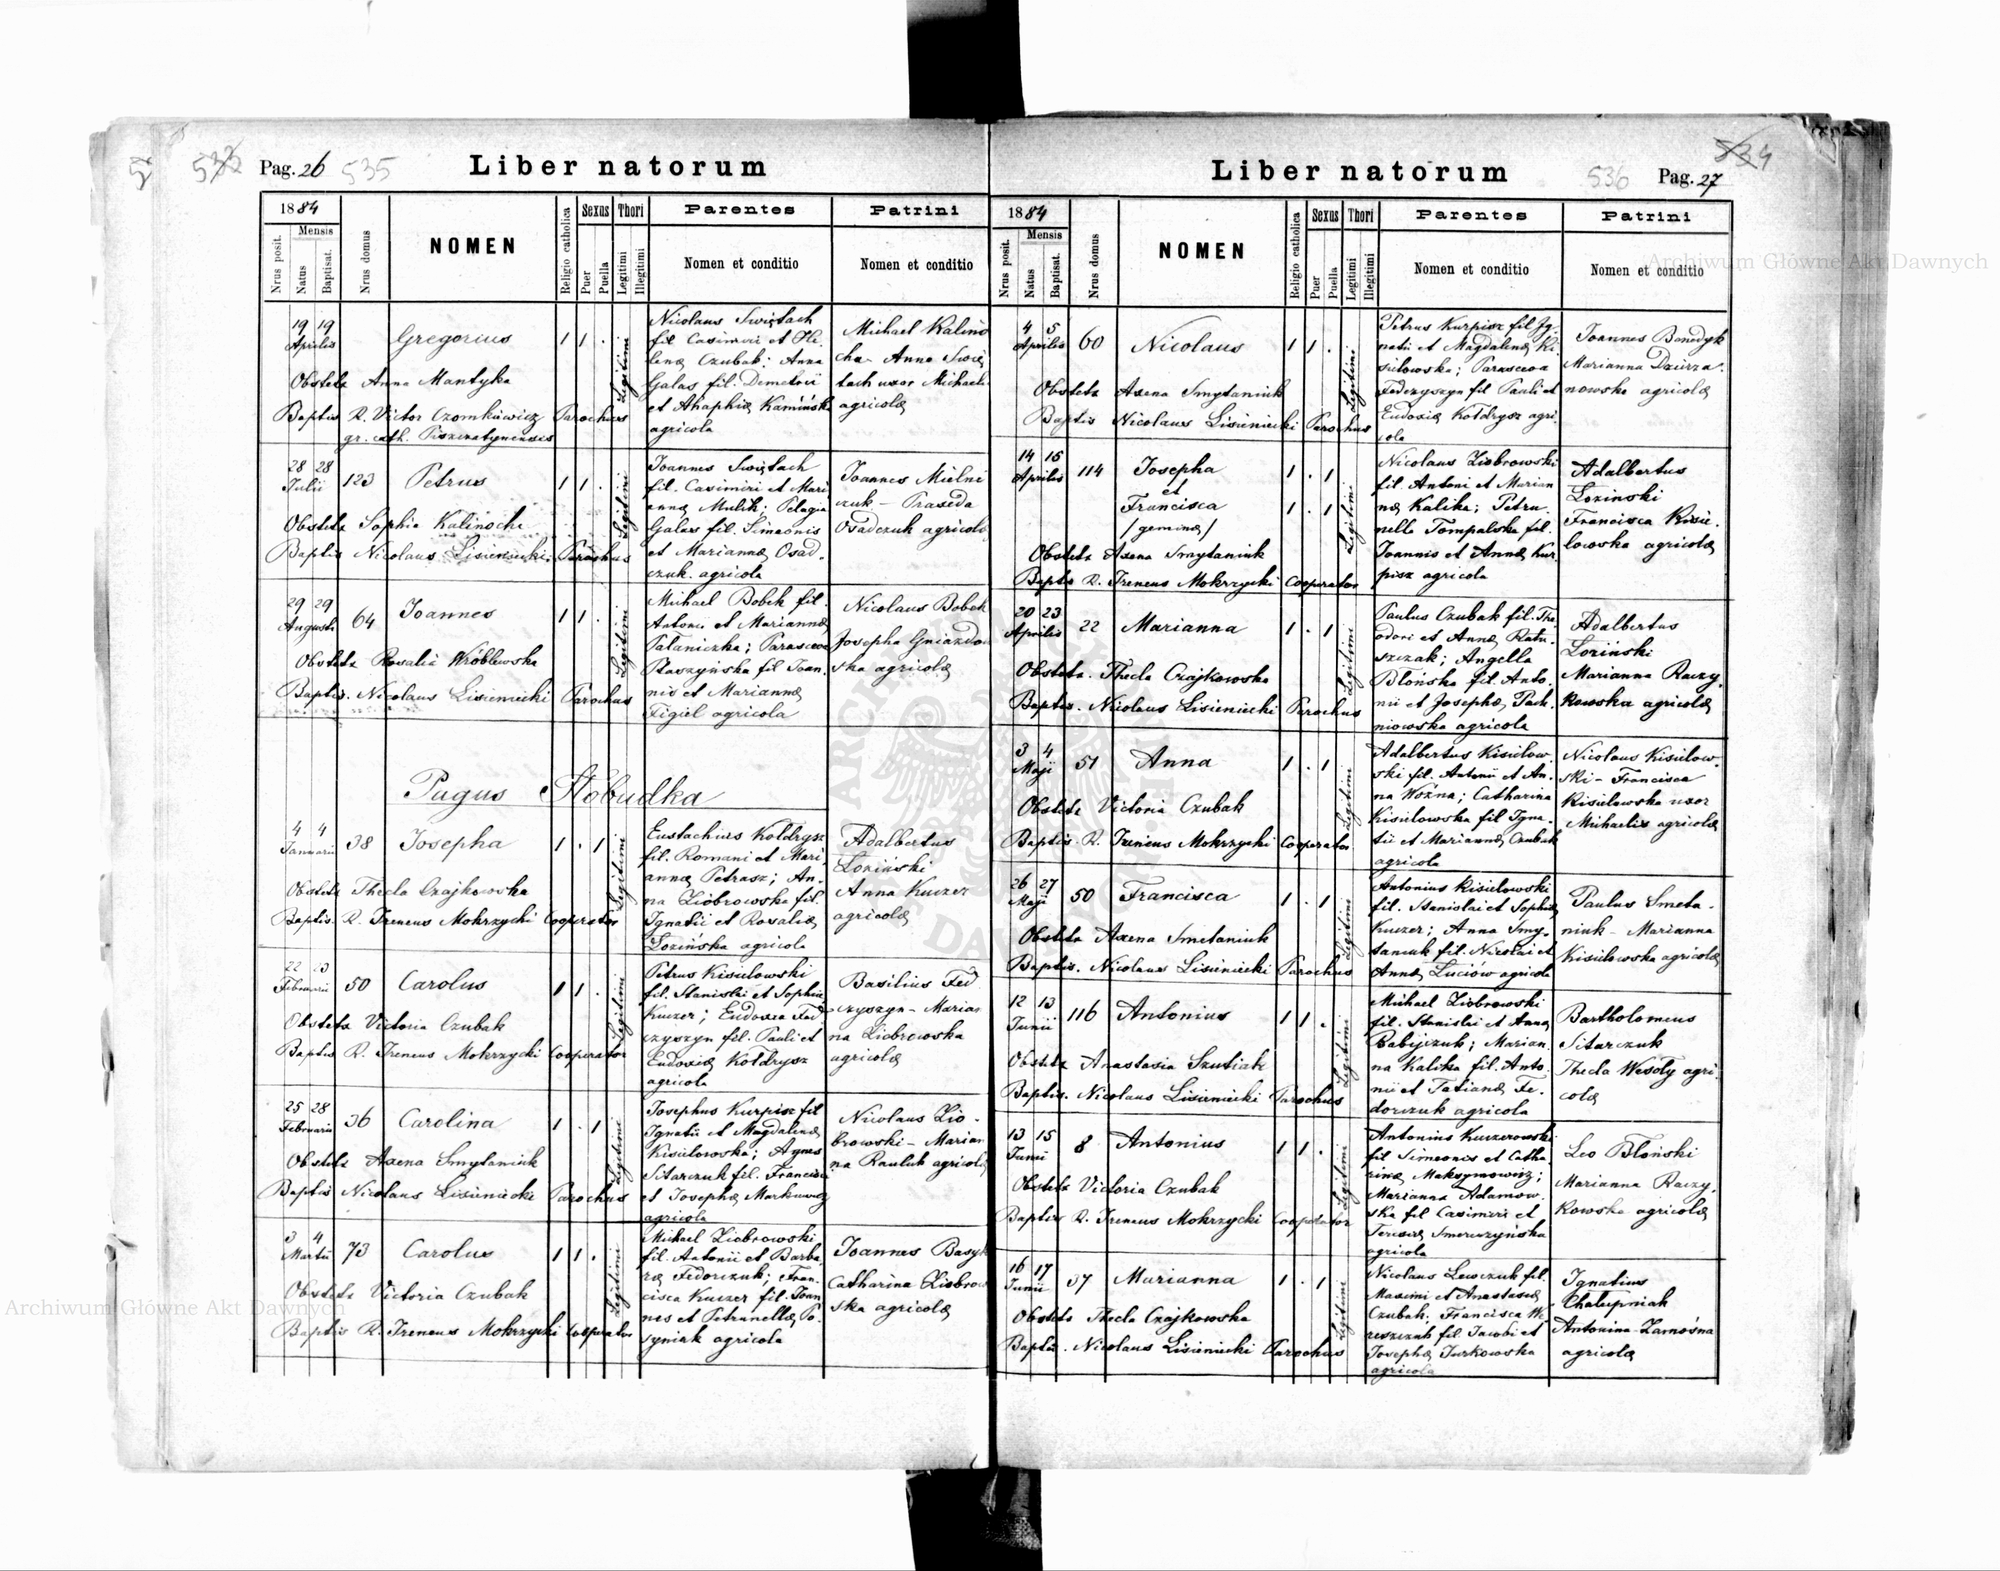 533 Pag. 26 535 Liber natorum
1884
Mensis
Nrus posit.
Natus
Baptisat.
Nrus domus
NOMEN
Religio catholica
Sexus
Puer
Puella
Thori
Legitimi
Illegitimi
Parentes
Nomen et conditio
Patrini
Nomen et conditio
19 19
Aprilis
Gregorius
1 1 .
Legitimi
Obstetx Anna Mantyka
Baptis R. Victor Czomkiewicz Parochus
gr. cath. Piszczatynensis
Nicolaus Swiętach
fil Casimiri et He-
lenæ Czubak: Anna
Galas fil. Demetrii
et Ahaphiæ Kamińska
agricola
Michael Kalino
cha Anna Swię
tach uxor Michaeli
agricolæ
28 28
Julii
123
Petrus
1 1 .
Legitimi
Obstetx Sophia Kalinocha
Baptis Nicolaus Lisieniecki. Parochus
Joannes Swiętach
fil. Casimiri et Mari
annæ Mulik; Pelagia
Galas fil. Simeonis
et Mariannæ Osad-
czuk. agricola
Joannes Mielni
czuk - Praxeda
Osadczuk agricolæ
29 29
Augusti
64
Joannes
1 1 .
Legitimi
Obstetx Rosalia Wróblewska
Baptis. Nicolaus Lisieniecki Parochus
Michael Bobek fil.
Antonii et Mariannæ
Pataniczka; Parasceva
Ptaszyńska fil Joan-
nis et Mariannæ
Figiel agricola
Nicolaus Bobek
Josepha Gniazdow
ska agricolæ
Pagus Słobudka
4 4
Januarii
38
Josepha
1 . 1
Legitimi
Obstetx Thecla Czajkowska
Baptis. R. Ireneus Mokrzycki Cooperator
Eustachius Kołdrysz
fil. Romani et Mari-
annæ Petrasz; An-
na Ziobrowska fil.
Ignatii et Rosaliæ
Łozińska agricola
Adalbertus
Łoziński
Anna Kuczer
agricolæ
22 23
Februarii
50
Carolus
1 1 .
Legitimi
Obstetx Victoria Czubak
Baptis R. Ireneus Mokrzycki Cooperator
Petrus Kisielowski
fil. Stanislai et Sophiæ
Kuczer; Eudoxia Fed
czyszyn fil. Pauli et
Eudoxiæ Kołdrysz
agricola
Basilius Fed
czyszyn - Marian
na Ziobrowska
agricolæ
25 28
Februarii
36
Carolina
1 . 1
Legitimi
Obstetx Axena Smytaniuk
Baptis Nicolaus Lisieniecki Parochus
Josephus Kurpisz fil
Ignatii et Magdalenæ
Kisielowska; Agnes
Sitarczuk fil. Francisci
et Josephæ Markiewicz
agricola
Nicolaus Zio-
browski - Marian
na Rauluk agricolæ
3 4
Martii
73
Carolus
1 1 .
Legitimi
Obstetx Victoria Czubak
Baptis R. Ireneus Mokrzycki Cooperator
Michael Ziobrowski
fil. Antonii et Barba-
ræ Fedorczuk; Fran-
cisca Kuczer fil. Joan
nes et Petrunellæ Po-
syniak agricola
Joannes Basyk
Catharina Ziobrow
ska agricolæ
Liber natorum 536 Pag. 27 534
1884
Mensis
Nrus posit.
Natus
Baptisat.
Nrus domus
NOMEN
Religio catholica
Sexus
Puer
Puella
Thori
Legitimi
Illegitimi
Parentes
Nomen et conditio
Patrini
Nomen et conditio
4 5
Aprilis
60
Nicolaus
1 1 .
Legitimi
Obstetx Axena Smytaniuk
Baptis Nicolaus Lisieniecki Parochus
Petrus Kurpisz fil Ig-
natii et Magdalenæ Ki-
sielowska; Parasceva
Fedczyszyn fil Pauli et
Eudoxiæ Kołdrysz agri-
cola
Joannes Benedyk
Marianna Dziurza-
nowska agricolæ
14 16
Aprilis
114
Josepha
et
Francisca
/geminæ/
1 . 1
1 . 1
Legitimi
Obstetx Axena Smytaniuk
Baptis R. Ireneus Mokrzycki Cooperator
Nicolaus Ziobrowski
fil. Antoni et Marian
næ Kalika; Petru-
nella Tompalska fil.
Joannis et Annæ Kur-
pisz agricola
Adalbertus
Łozinski
Francisca Kisie-
lowska agricolæ
20 23
Aprilis
22
Marianna
1 . 1
Legitimi
Obstetx. Thecla Czajkowska
Baptis. Nicolaus Lisieniecki Parochus
Paulus Czubak fil. The
odori et Annæ Ratu-
szczak; Angella
Błońska fil. Anto-
nii et Josephæ Pach-
niowska agricola
Adalbertus
Łoziński
Marianna Raczy-
kowska agricolæ
3 4
Maji
51
Anna
1 . 1
Legitimi
Obstetx Victoria Czubak
Baptis. R. Ireneus Mokrzycki Cooperator
Adalbertus Kisielow-
ski fil. Antonii et An-
na Woźna; Catharina
Kisielowska fil Igna-
tii et Mariannæ Czubak
agricola
Nicolaus Kisielow-
ski - Francisca
Kisielowska uxor
Michaelis agricolæ
26 27
Maji
50
Francisca
1 . 1
Legitimi
Obstetx Axena Smetaniuk
Baptis. Nicolaus Lisieniecki Parochus
Antonius Kisielowski
fil. Stanislai et Sophiæ
Kuczer; Anna Smy-
taniuk fil. Nicolai et
Annæ Luciów agricola
Paulus Smeta-
niuk - Marianna
Kisielowska agricolæ
12 13
Junii
116
Antonius
1 1 .
Legitimi
Obstetx Anastasia Szutiak
Baptis. Nicolaus Lisieniecki Parochus
Michael Ziobrowski
fil. Stanislai et Annæ
Babijczuk; Marian-
na Kalika fil. Anto-
nii et Tatianæ Fe-
dorczuk agricola
Bartholomeus
Sitarczuk
Thecla Wesoły agri-
colæ
13 15
Junii
8
Antonius
1 1 .
Legitimi
Obstetx Victoria Czubak
Baptis R. Ireneus Mokrzycki Cooperator
Antonius Kuczerowski
fil Simeonis et Catha-
rinæ Maksymowicz;
Marianna Adamow-
ska fil Casimiri et
Teresiæ Smereczyńska
agricola
Leo Błoński
Marianna Raczy-
kowska agricolæ
16 17
Junii
37
Marianna
1 . 1
Legitimi
Obstetx Thecla Czajkowska
Baptis. Nicolaus Lisieniecki Parochus
Nicolaus Lewczuk fil.
Maximi et Anastasiæ
Czubak. Francisca We
reszczuk fil. Jacobi et
Josephæ Jurkowska
agricola
Ignatius
Chałupniak
Antonina Zamośna
agricolæ
Archiwum Główne Akt Dawnych
Archiwum Główne Akt Dawnych